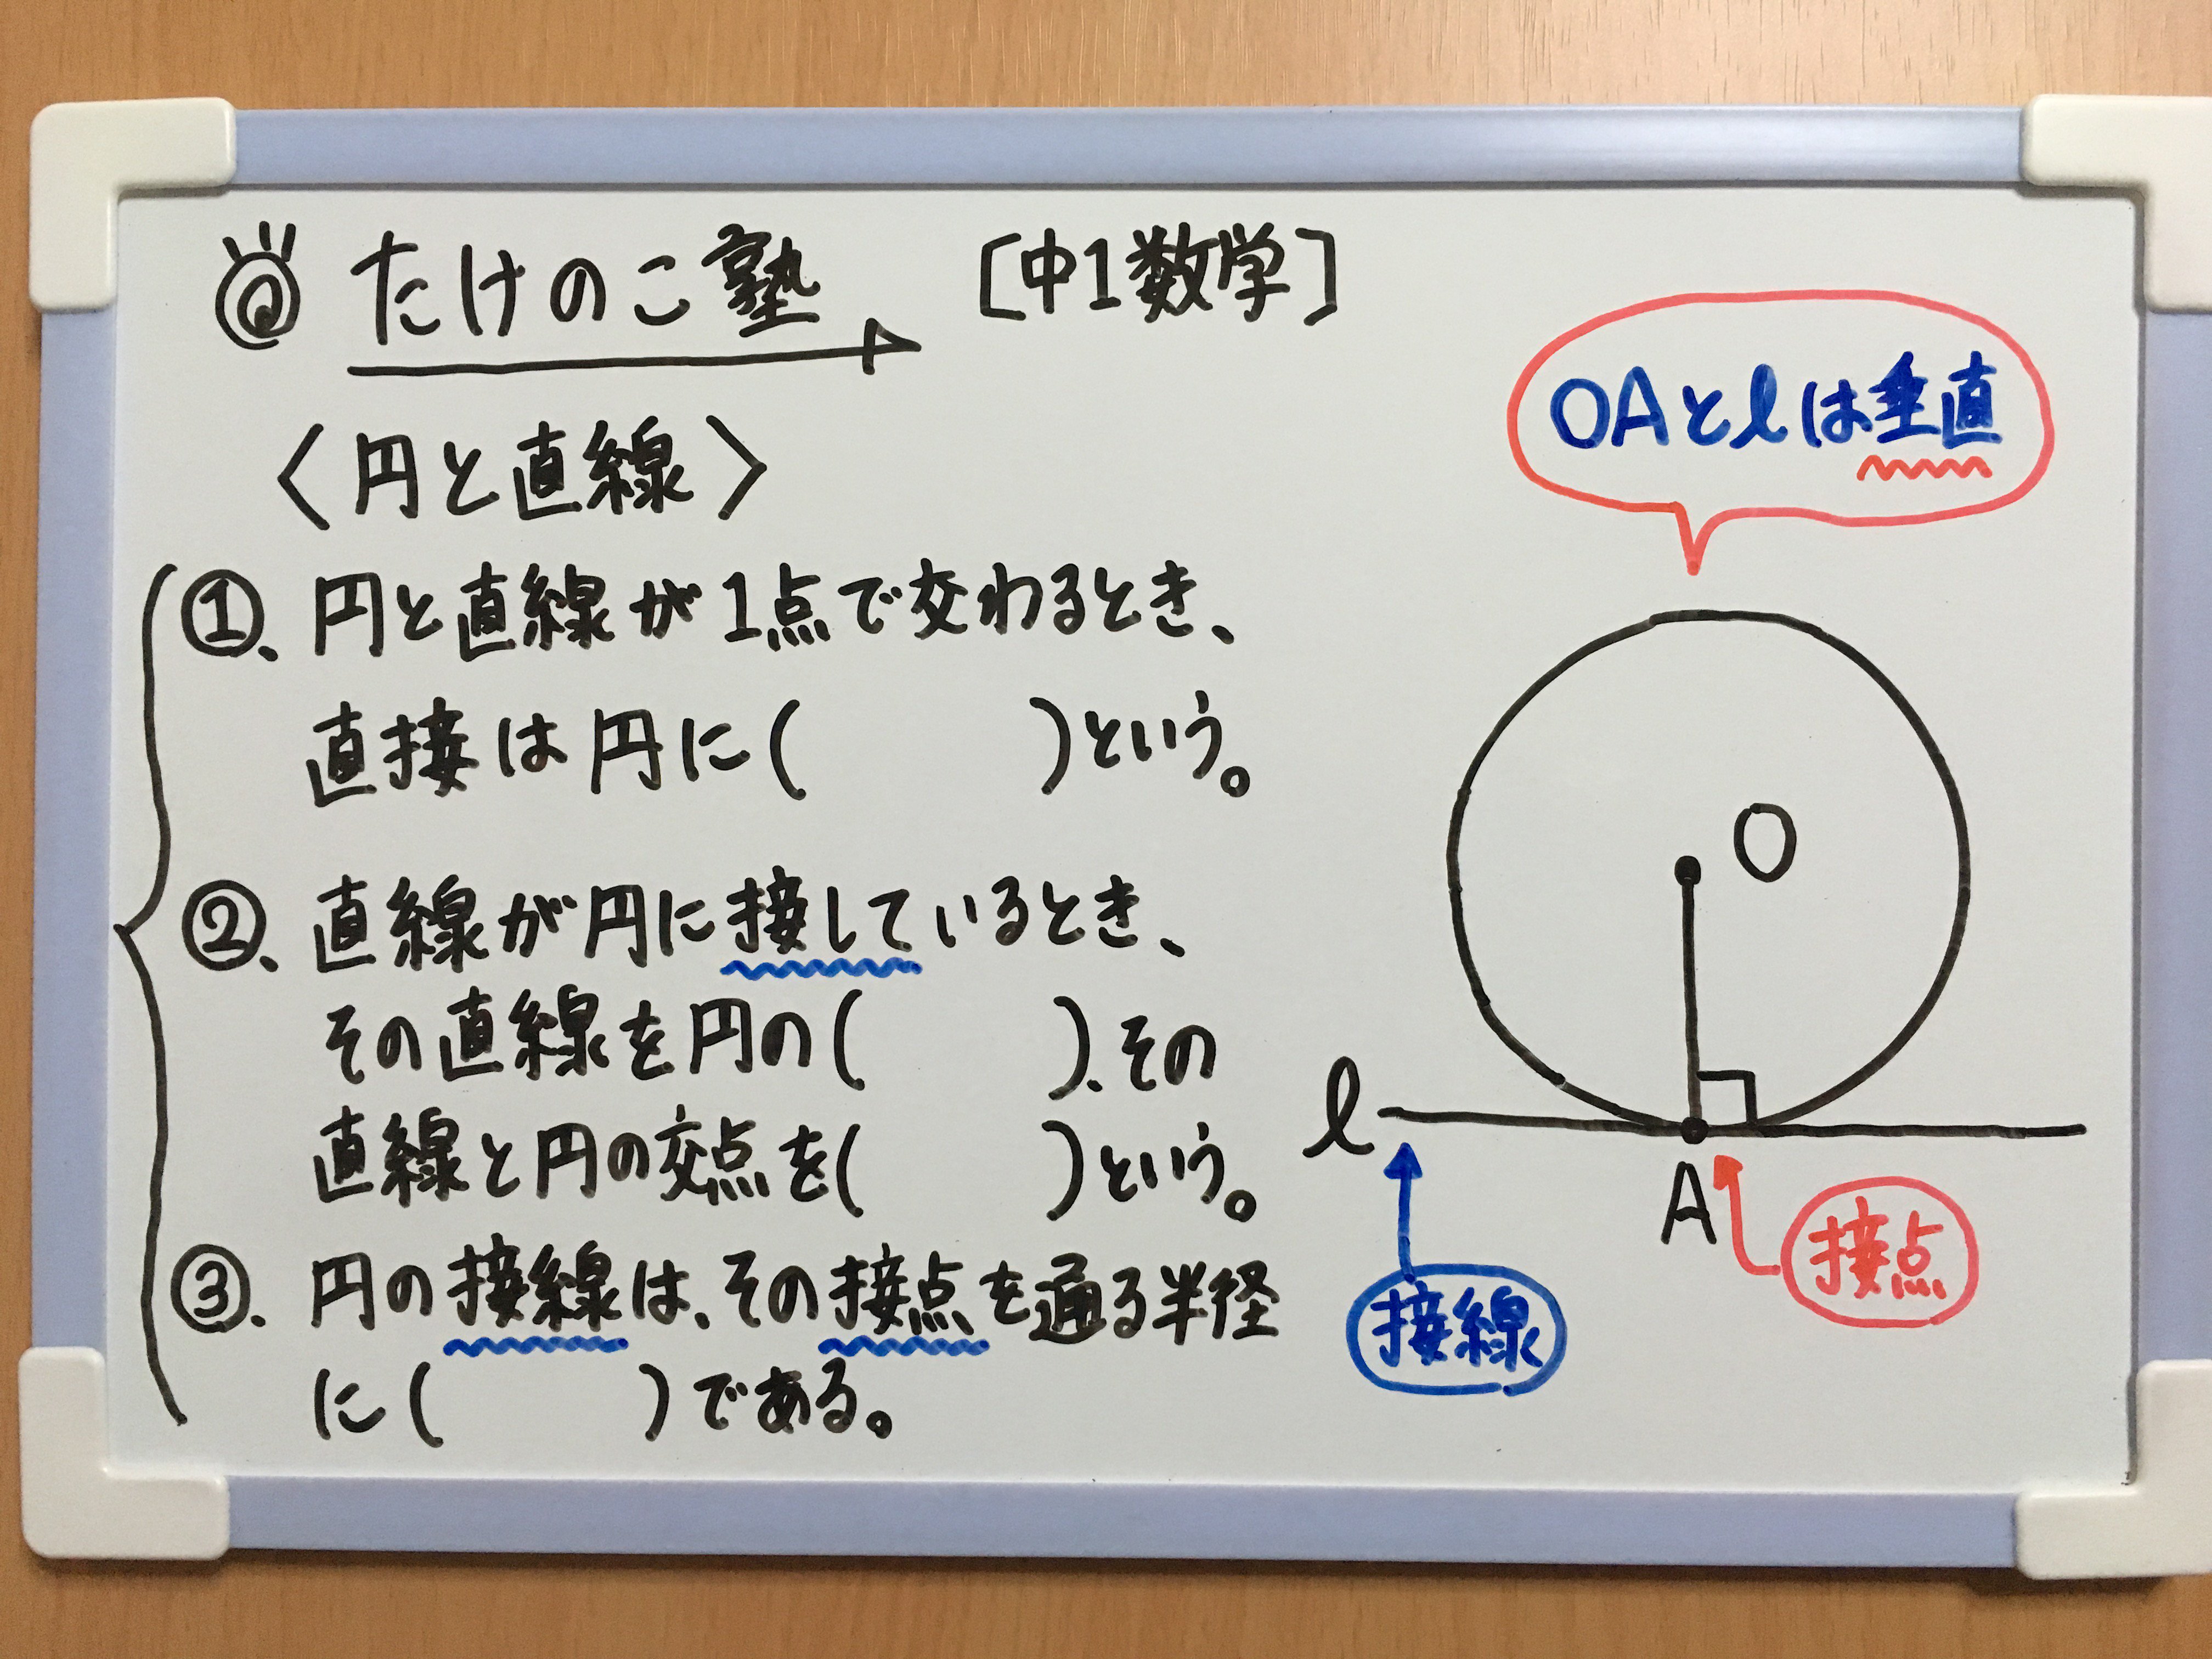 たけのこ塾 [中1数学]
〈円と直線〉
①、円と直線が1点で交わるとき、
直接は円に( )という。
②、直線が円に接しているとき、
その直線を円の( )、その
直線と円の交点を( )という。
③、円の接線は、その接点を通る半径
に( )である。
OAとℓは垂直
O
ℓ
A
接点
接線